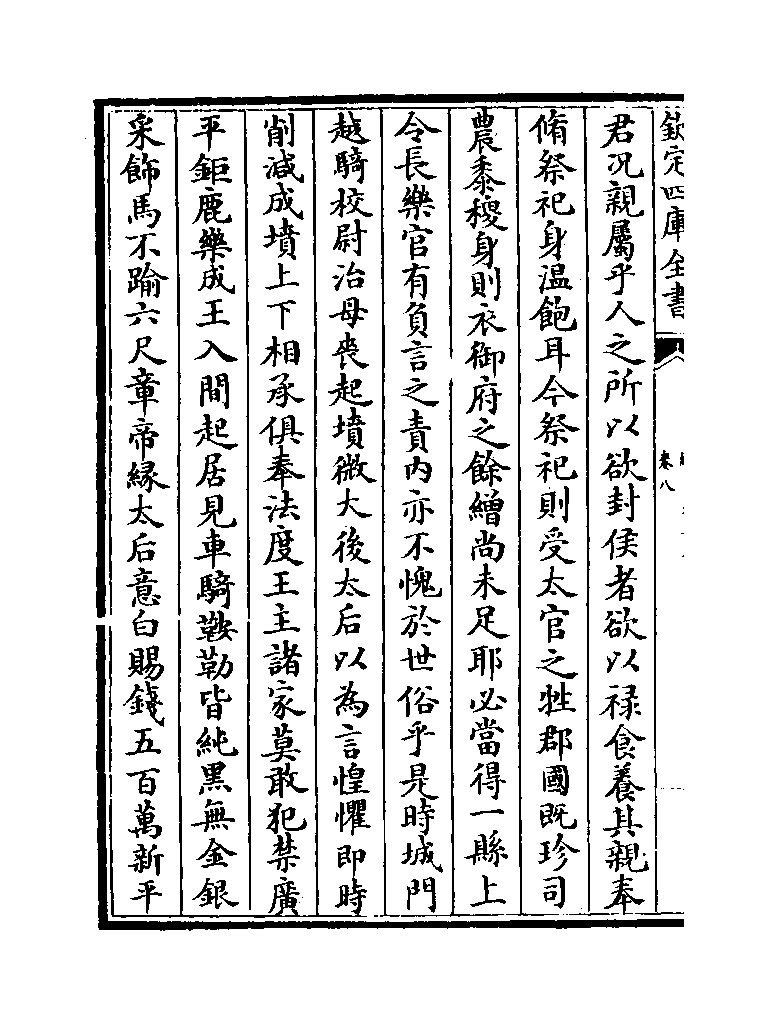 欽定四庫全書
卷八
君况親屬乎人之所以欲封侯者欲以禄食養其親奉
脩祭祀身温飽耳今祭祀則受太官之牲郡國既珍司
農黍稷身則衣御府之餘繒尚未足耶必當得一縣上
令長樂官有負言之責内亦不愧於世俗乎是時城門
越騎校尉治母喪起墳微大後太后以為言惶懼即時
削減成墳上下相承俱奉法度王主諸家莫敢犯禁廣
平鉅鹿樂成王入間起居見車騎鞍勒皆純黑無金銀
采飾馬不踰六尺章帝縁太后意白賜錢五百萬新平